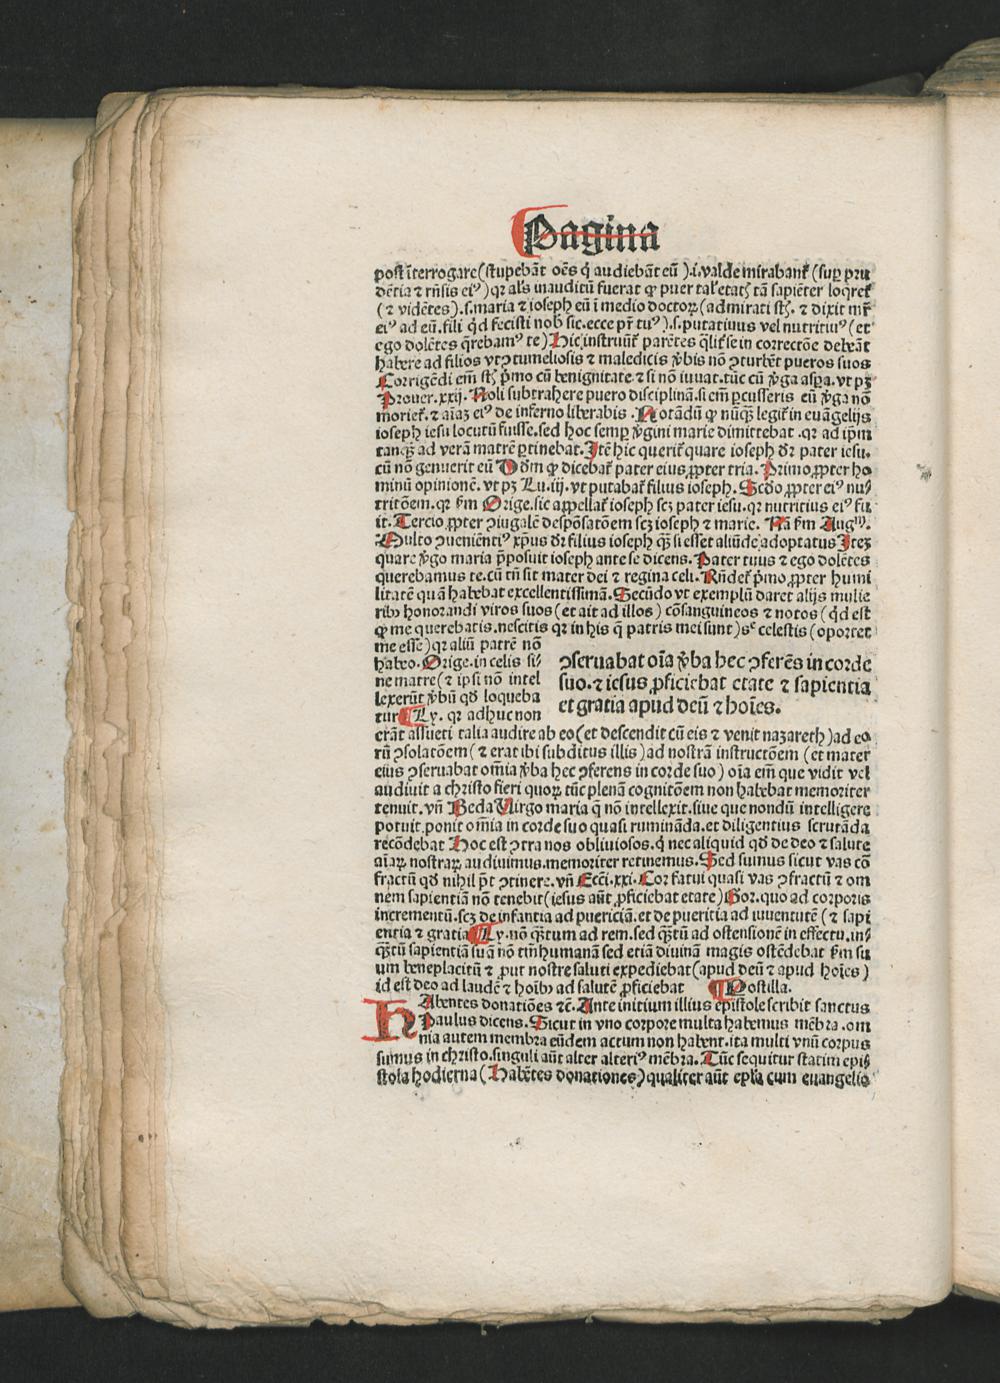 Pagina
post ĩterrogare (stupebãt oẽs q̇ audiebãt eũ) .i. valde mirabant᷑ (sup̱ pru
dẽtia ⁊ rñsis eiꝰ) qꝛ als̃ inauditũ fuerat ꝙ puer tal᷑ etatꝭ tã sapiẽter loqret᷑
(⁊ vidẽtes) .s. maria ⁊ ioseph eũ ĩ medio doctoꝝ (admirati stꝭ. ⁊ dixit mr̃
eiꝰ ad eũ. fili q̇d fecisti nob̃ sic. ecce pr̃ tuꝰ) .s. putatiuus vel nutritiuꝰ (et
ego dolẽtes q̃rebamꝰ te) Hic instruũt᷑ parẽtes q̃lit᷑ se in correctõe debeãt
habere ad filios vt ꝯtumeliosis ⁊ maledicis v̾bis nõ ꝯturbẽt pueros suos
Corrigẽdi em̃ stꝭ pͥmo cũ benignitate. ⁊ si nõ iuuat. tũc cũ v̾ga aspa. vt pꝫ
Prouer. xxij. Noli subtrahere puero disciplinã. si em̃ ꝑcusseris eũ v̾ga nõ
moriet᷑. ⁊ aĩaꝫ eiꝰ de inferno liberabis. Notãdũ ꝙ nũqꝫ legit᷑ in euãgelijs
ioseph iesu locutũ fuisse. sed hoc semp̱ v̾gini marie dimittebat. qꝛ ad ip̃m
tanqꝫ ad verã matrẽ ꝑtinebat. Itẽ hic querit᷑ quare ioseph dr̃ pater iesu.
cũ nõ genuerit eũ Dd̃m ꝙ dicebat᷑ pater eius ꝓpter tria. Primo ꝓpter ho
minũ opinionẽ. vt pꝫ Lu. iij. vt putabat᷑ filius ioseph. Scd̃o ꝓpter eiꝰ nu⸗
tritõem. qꝛ ẜm Orige. sic appellat᷑ ioseph scꝫ pater iesu. qꝛ nutritius eiꝰ fu
it. Tercio ꝓpter ꝯiugalẽ despõsatõem scꝫ ioseph ⁊ marie. Nã ẜm Augꝰ.
Multo ꝯuenientiꝰ xp̃us dr̃ filius ioseph qꝫ si esset aliũde adoptatus Iteꝫ
quare v̾go maria p̃posuit ioseph ante se dicens. Pater tuus ⁊ ego dolẽtes
querebamus te. cũ tñ sit mater dei ⁊ regina celi. Rñdet᷑ pͥmo ꝓpter humi
litatẽ quã habebat excellentissimã. Secũdo vt exemplũ daret alijs mulie
ribꝫ honorandi viros suos (et ait ad illos) cõsanguineos ⁊ notos (q̇d est
ꝙ me querebatis. nescitis qꝛ in his q̃ patris mei sunt) sꝫ celestis (oportet
me esse) qꝛ aliũ patrẽ nõ
habeo. Orige. in celis si⸗
ne matre (⁊ ipsi nõ intel
lexerũt v̾bũ qd̃ loqueba
tur Ly. qꝛ adhuc non
ꝯseruabat oĩa v̾ba hec ꝯferẽs in corde
suo. ⁊ iesus ꝓficiebat etate ⁊ sapientia
et gratia apud deũ ⁊ hoĩes.
erãt assueti talia audire ab eo (et descendit cũ eis ⁊ venit nazareth) ad eo
rũ ꝯsolatõem (⁊ erat ibi subditus illis) ad nostrã instructõem (et mater
eius ꝯseruabat om̃ia v̾ba hec ꝯferens in corde suo) oĩa em̃ que vidit vel
audiuit a christo fieri quoꝝ tũc plenã cognitõem non habebat memoriter
tenuit. vñ Beda Virgo maria q̃ nõ intellexit. siue que nondũ intelligere
potuit. ponit om̃ia in corde suo quasi ruminãda. et diligentius scrutãda
recõdebat Hoc est ꝯtra nos obliuiosos. q̇ nec aliquid qd̃ de deo ⁊ salute
aĩaꝝ nostraꝝ audiuimus. memoriter retinemus. Sed sumus sicut vas cõ
fractũ qd̃ nihil pt̃ ꝯtinere. vñ Ecci. xxi. Cor fatui quasi vas ꝯfractũ ⁊ om
nem sapientiã nõ tenebit (iesus aũt ꝓficiebat etate) Gor. quo ad corporis
incrementũ. scꝫ de infantia ad puericiã. et de pueritia ad iuuentutẽ (⁊ sapi
entia ⁊ gratia Ly. nõ qꝫtum ad rem. sed qꝫtũ ad ostensionẽ in effectu. in⸗
qꝫtũ sapientiã suã nõ tm̃ humanã sed etiã diuinã magis ostẽdebat ẜm su
um beneplacitũ ⁊ ꝓut nostre saluti expediebat (apud deũ ⁊ apud hoĩes)
id est deo ad laudẽ ⁊ hoĩbꝫ ad salutẽ ꝓficiebat Postilla.
HAbentes donatiões ⁊c̃. Ante initium illius epistole scribit sanctus
Paulus dicens. Sicut in vno corpore multa habemus mẽbra. om
nia autem membra eũdem actum non habent. ita multi vnũ corpus
sumus in christo. singuli aũt alter alteriꝰ mẽbra. Tũc sequitur statim epi⸗
stola hodierna (Habẽtes donationes) qualiter aũt ep̃la cum euangelio